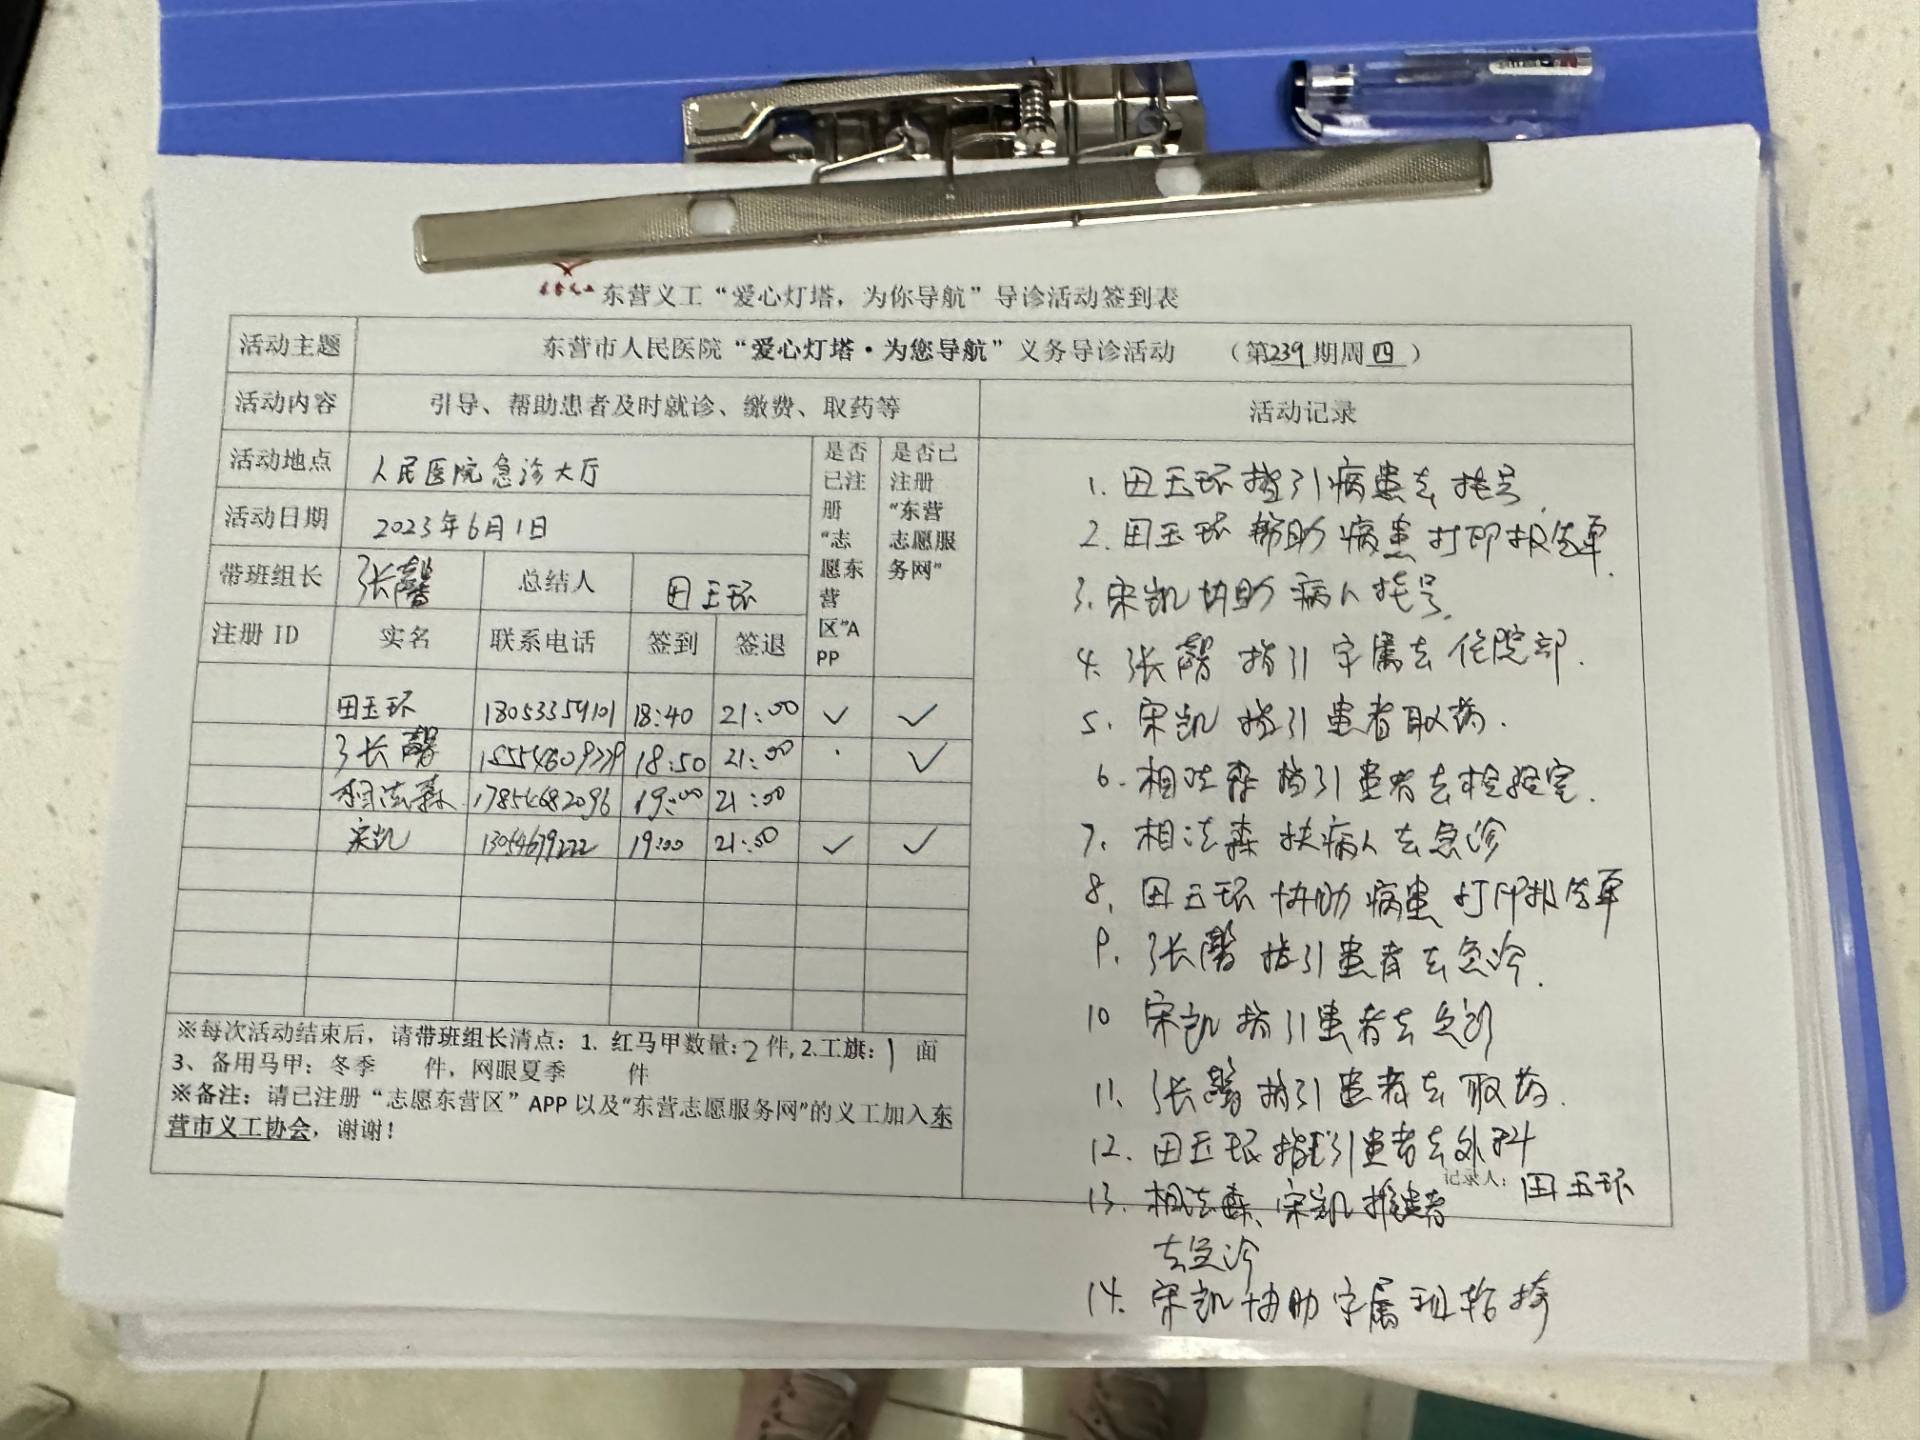 东营义工“爱心灯塔，为你导航”导诊活动签到表
活动主题 东营市人民医院“爱心灯塔·为您导航”义务导诊活动 （第239期周四）
活动内容 引导、帮助患者及时就诊、缴费、取药等 活动记录
活动地点 人民医院急诊大厅
活动日期 2023年6月1日
带班组长 张馨 总结人 田玉环
是否已注册“志愿东营区”APP
是否已注册“东营志愿服务网”
注册 ID 实名 联系电话 签到 签退
田玉环 18053359101 18:40 21:00 ✓ ✓
张馨 18:50 21:00 ✓
相法森 17854682096 19:00 21:00
宋凯 19:00 21:00 ✓ ✓
※每次活动结束后，请带班组长清点：1. 红马甲数量：2件，2.工旗：1 面
3、备用马甲：冬季 件，网眼夏季 件
※备注：请已注册“志愿东营区”APP 以及“东营志愿服务网”的义工加入东
营市义工协会，谢谢！
1. 田玉环指引病患去挂号.
2. 田玉环帮助病患打印报告单.
3. 宋凯协助病人挂号.
4. 张馨指引家属去住院部.
5. 宋凯指引患者取药.
6. 相法森指引患者去检验室.
7. 相法森扶病人去急诊
8. 田玉环协助病患打印报告单
9. 张馨指引患者去急诊.
10 宋凯指引患者去急诊
11. 张馨指引患者去取药.
12. 田玉环指引患者去外科
记录人：田玉环
13. 相法森、宋凯推患者
去急诊
14. 宋凯协助家属